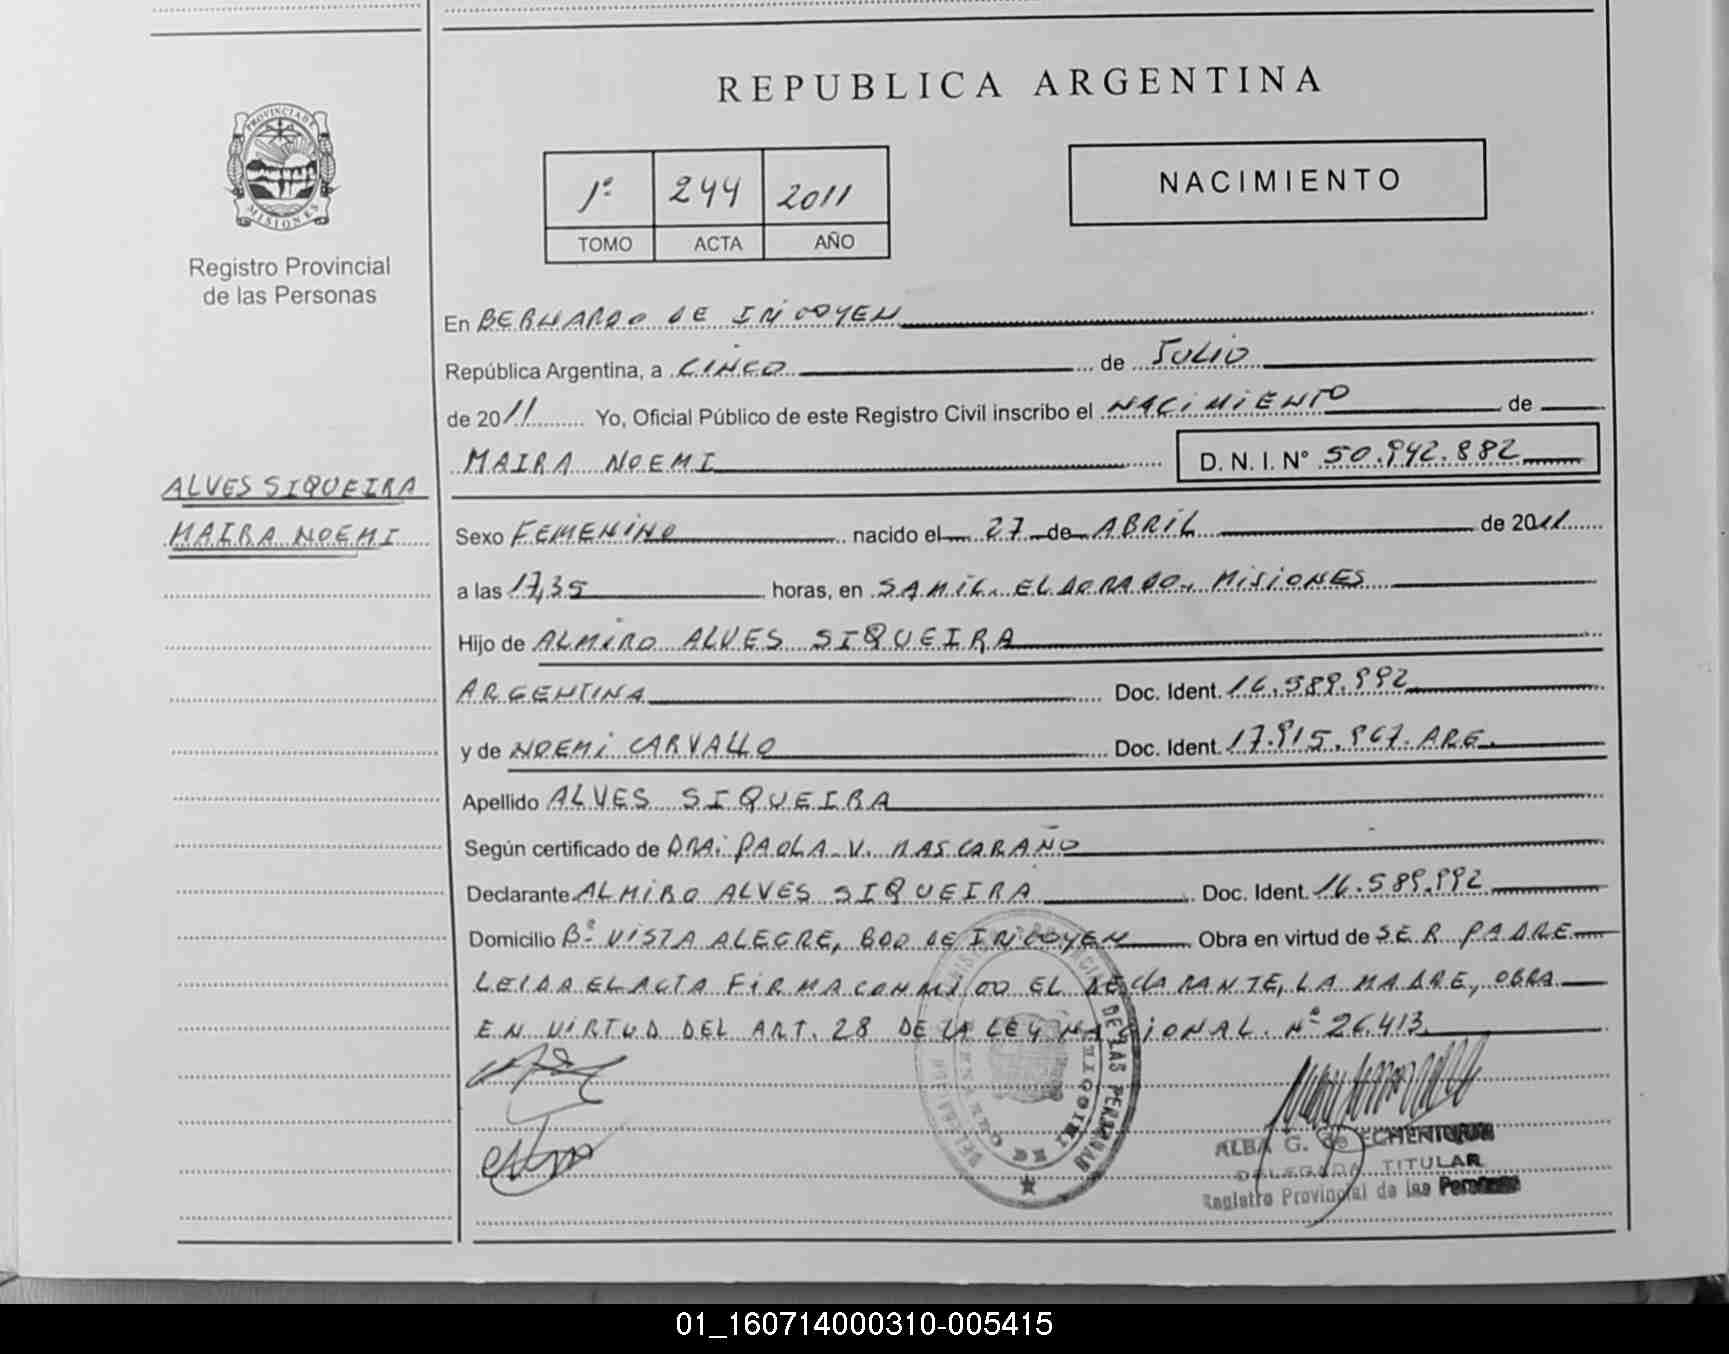 REPUBLICA ARGENTINA
PROVINCIA DE
MISIONES
Registro Provincial
de las Personas
1º 244 2011
TOMO ACTA AÑO
NACIMIENTO
En BERNARDO DE IRIGOYEN
República Argentina, a CINCO de JULIO
de 2011 Yo, Oficial Público de este Registro Civil inscribo el NACIMIENTO de
MAIRA NOEMI D. N. I. N° 50.942.882
ALVES SIQUEIRA
MAIRA NOEMI
Sexo FEMENINO nacido el 27 de ABRIL de 2011
a las 17,35 horas, en SAMIC. ELDORADO. MISIONES
Hijo de ALMIRO ALVES SIQUEIRA
ARGENTINA Doc. Ident. 16.589.992
y de NOEMI CARVALLO Doc. Ident. 17.915.967. ARG.
Apellido ALVES SIQUEIRA
Según certificado de DRA. PAOLA V. MASCARAÑO
Declarante ALMIRO ALVES SIQUEIRA Doc. Ident. 16.589.992
Domicilio Bº VISTA ALEGRE, BDO DE IRIGOYEN Obra en virtud de SER PADRE
LEIDA EL ACTA FIRMA CONMIGO EL DECLARANTE, LA MADRE, OBRA
EN VIRTUD DEL ART. 28 DE LA LEY NACIONAL Nº 26.413
DE LAS PERSONAS
ALBA G. de ECHENIQUE
DELEGADA TITULAR
Registro Provincial de las Personas
01_160714000310-005415